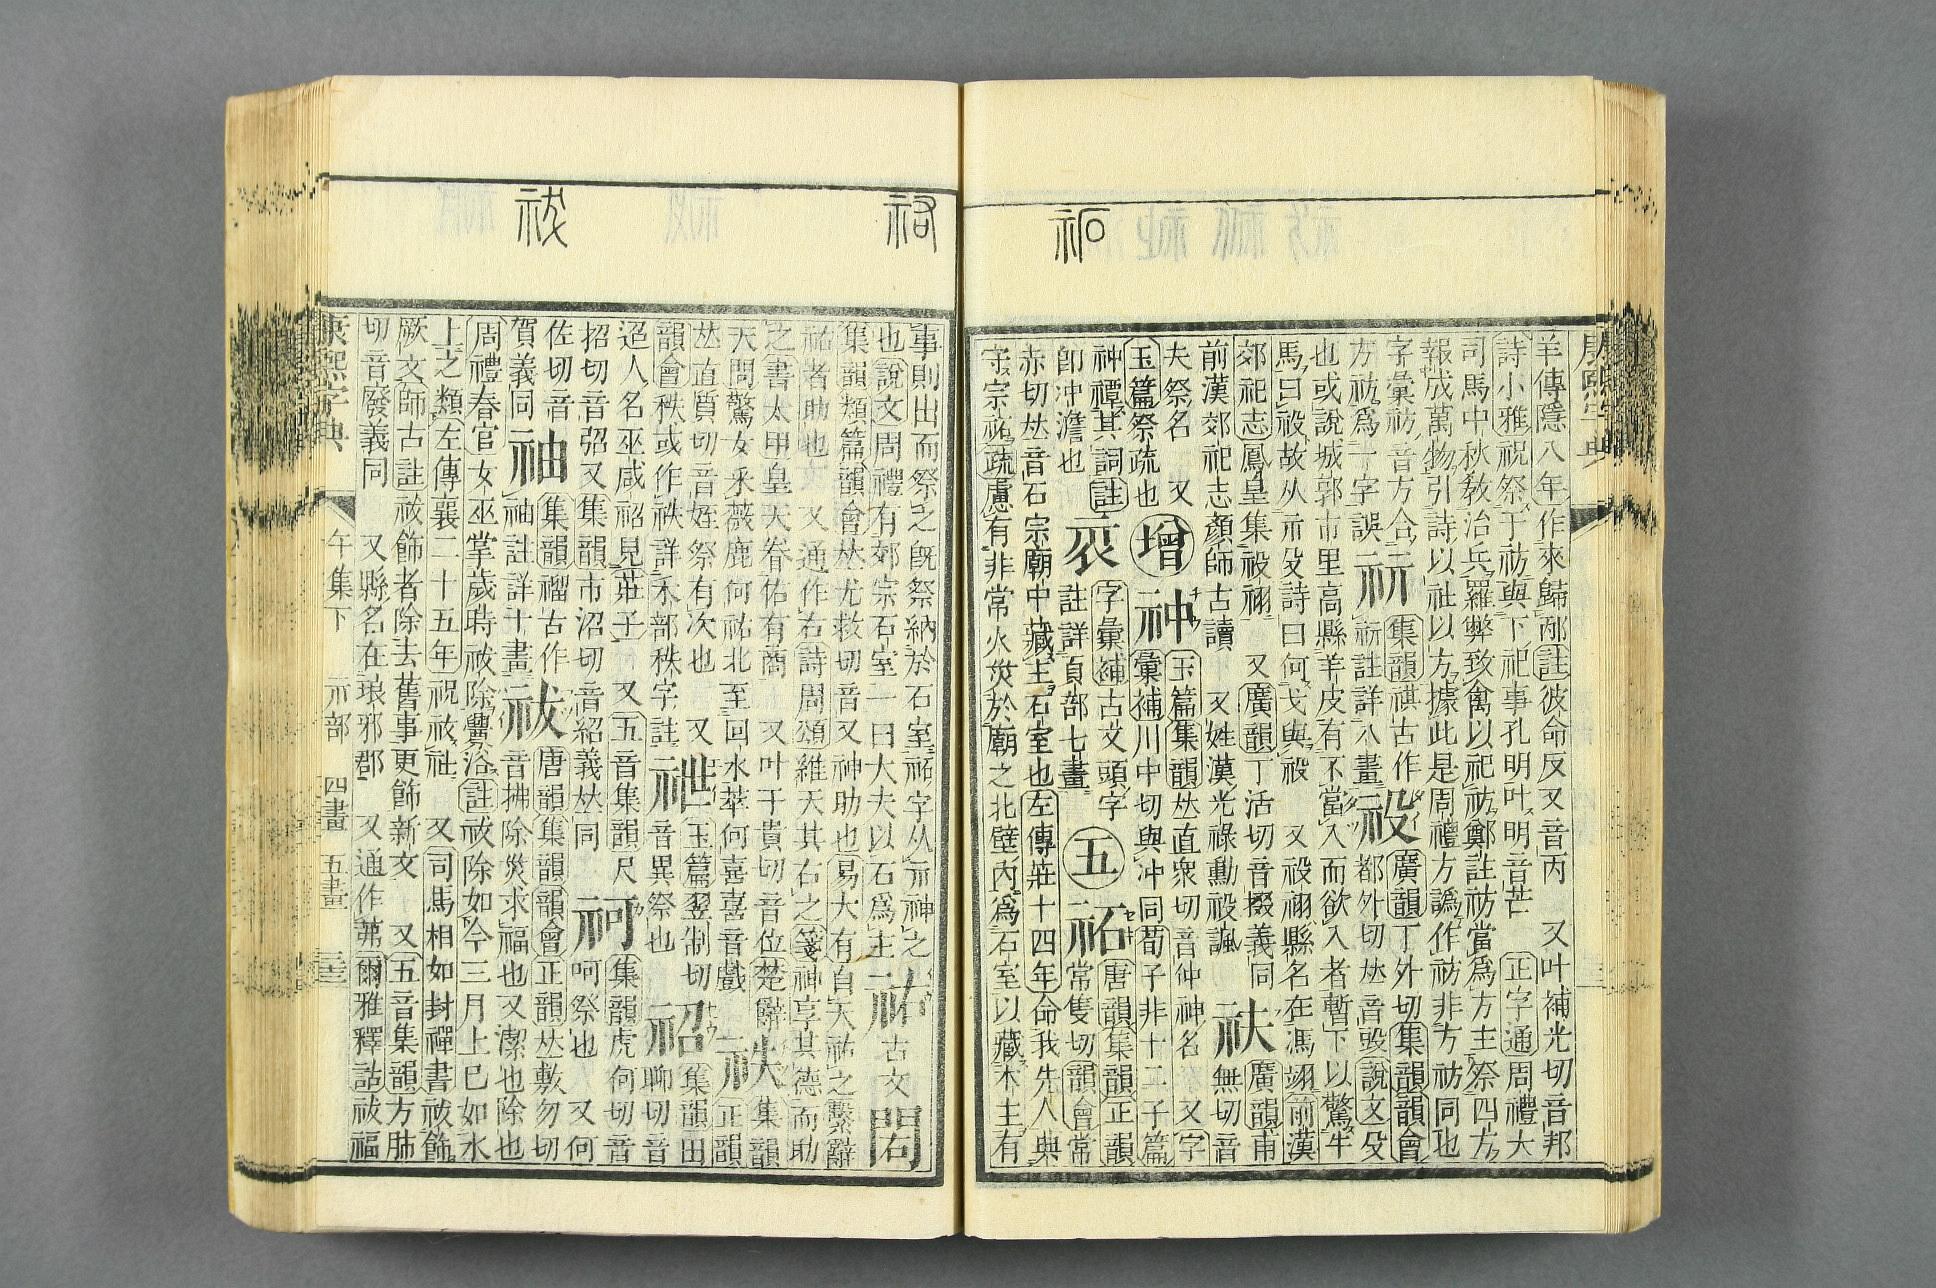 祏
羊傳隱八年作來歸邴註彼命反又音丙 又叶補光切音邦
詩小雅祝祭于祊與下祀事孔明叶明音芒 正字通周禮大
司馬中秋教治兵羅弊致禽以祀祊鄭註祊當爲方主祭四方
報成萬物引詩以社以方據此是周禮方譌作祊非方祊同也
字彙祊音方合
方祊爲一字誤 祈 集韻祺古作
祈註詳八畫 祋 廣韻丁外切集韻韻會
都外切𠀤音㱼說文殳
也或說城郭市里高縣羊皮有不當入而欲入者暫下以驚牛
馬曰祋故从示殳詩曰何戈與祋 又祋祤縣名在馮翊前漢
郊祀志鳳皇集祋祤 又廣韻丁活切音掇義同
前漢郊祀志顏師古讀 又姓漢光祿勳祋諷 祑 廣韻甫
無切音
夫祭名 又
玉篇祭疏也 增 神 玉篇集韻𠀤直衆切音仲神名 又字
彙補川中切與冲同荀子非十二子篇
神禫其詞註
卽沖澹也 字彙補古文頭字
註詳頁部七畫 五 祏 唐韻集韻正韻
常隻切韻會常
赤切𠀤音石宗廟中藏主石室也左傳莊十四年命我先人典
守宗祏疏慮有非常火災於廟之北壁內爲石室以藏木主有
祫 祓
事則出而祭之旣祭納於石室祏字从示神之
也說文周禮有郊宗石室一曰大夫以石爲主 古文 閎
集韻類篇韻會𠀤尤救切音又神助也易大有自天祐之繫辭
祐者助也 又通作右詩周頌維天其右之箋神享其德而助
之書太甲皇天眷佑有商 又叶于貴切音位楚辭
天問驚女采薇鹿何祐北至回水萃何喜喜音戲 祑 集韻
正韻
𠀤直質切音姪祭有次也
韻會秩或作祑詳禾部秩字註 又 玉篇翌制切
音異祭也 祒 集韻田
聊切音
迢人名巫咸祒見莊子 又五音集韻尺
招切音弨又集韻市沼切音紹義𠀤同 祠 集韻虎何切音
呵祭也 又何
佐切音
賀義同 袖 集韻禂古作
袖註詳十畫 祓 唐韻集韻韻會正韻𠀤敷勿切
音拂除災求福也又潔也除也
周禮春官女巫掌歲時祓除釁浴註祓除如今三月上巳如水
上之類左傳襄二十五年祝祓社 又司馬相如封禪書祓飾
厥文師古註祓飾者除去舊事更飾新文 又五音集韻方肺
切音廢義同 又縣名在琅邪郡 又通作茀爾雅釋詁祓福
康熙字典 午集下 示部 四畫 五畫